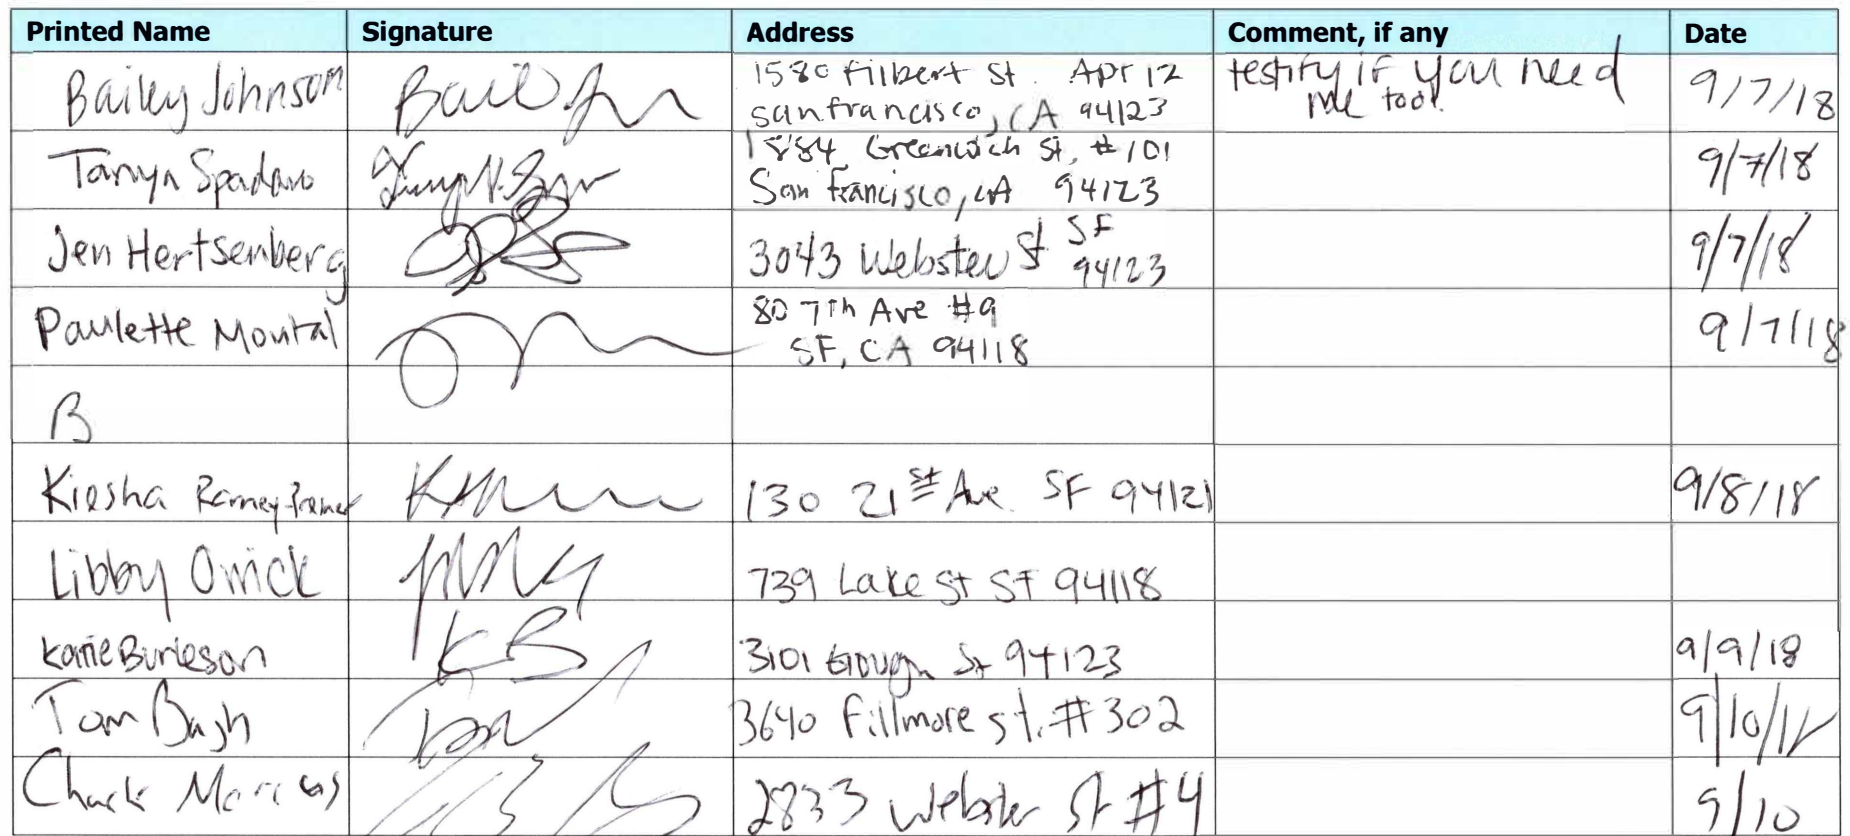 Printed Name Signature Address Comment, if any Date
Bailey Johnson 1580 Filbert St. Apt 12 testify if you need 9/7/18
San Francisco, CA 94123 me too.
Tanya Spadaro 1884 Greenwich St, #101 9/7/18
San Francisco, CA 94123
Jen Hertsenberg 3043 Webster St SF 9/7/18
94123
Paulette Montal 80 7th Ave #9 9/7/18
SF, CA 94118
B
Kiesha 130 21st Ave SF 94121 9/8/18
Libby Orrick 739 Lake St SF 94118
Katie Burleson KB 3101 Gough St 94123 9/9/18
Tom Bash 3640 Fillmore St. #302 9/10/18
Chuck Marcus 2833 Webster St #4 9/10